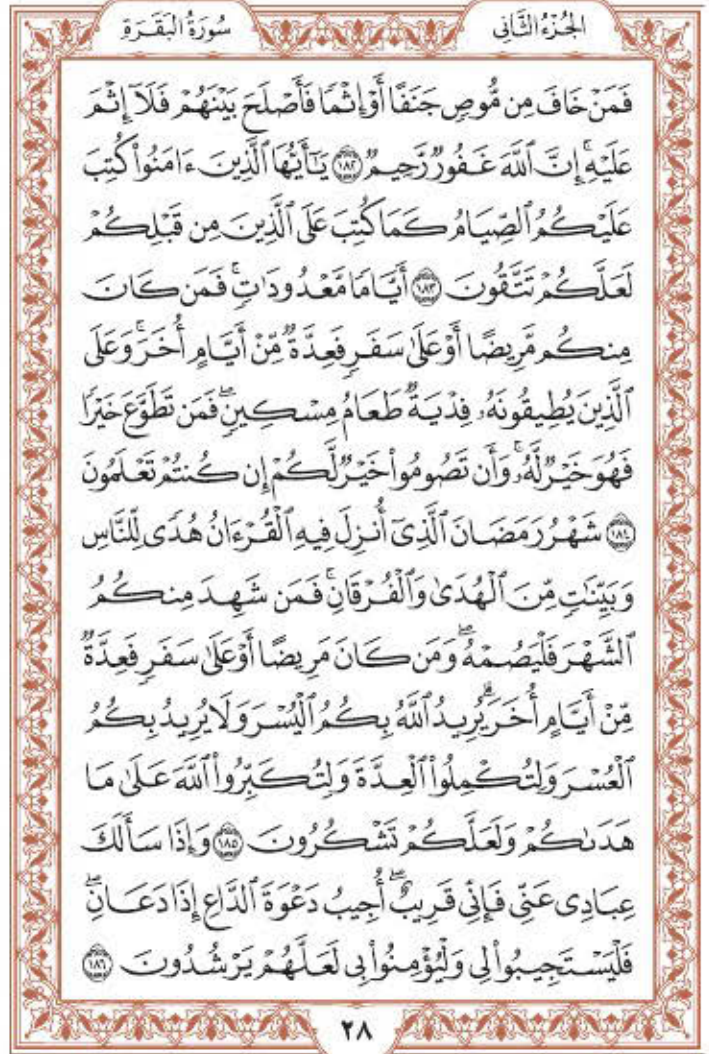 الجُزْءُ الثَّانِى سُورَةُ الْبَقَرَةِ
فَمَنْ خَافَ مِن مُّوصٍ جَنَفًا أَوْ إِثْمًا فَأَصْلَحَ بَيْنَهُمْ فَلَآ إِثْمَ
عَلَيْهِ ۚ إِنَّ ٱللَّهَ غَفُورٌ رَّحِيمٌ ١٨٢ يَـٰٓأَيُّهَا ٱلَّذِينَ ءَامَنُوا۟ كُتِبَ
عَلَيْكُمُ ٱلصِّيَامُ كَمَا كُتِبَ عَلَى ٱلَّذِينَ مِن قَبْلِكُمْ
لَعَلَّكُمْ تَتَّقُونَ ١٨٣ أَيَّامًا مَّعْدُودَٰتٍ ۚ فَمَن كَانَ
مِنكُم مَّرِيضًا أَوْ عَلَىٰ سَفَرٍ فَعِدَّةٌ مِّنْ أَيَّامٍ أُخَرَ ۚ وَعَلَى
ٱلَّذِينَ يُطِيقُونَهُۥ فِدْيَةٌ طَعَامُ مِسْكِينٍ ۖ فَمَن تَطَوَّعَ خَيْرًا
فَهُوَ خَيْرٌ لَّهُۥ ۚ وَأَن تَصُومُوا۟ خَيْرٌ لَّكُمْ إِن كُنتُمْ تَعْلَمُونَ
١٨٤ شَهْرُ رَمَضَانَ ٱلَّذِىٓ أُنزِلَ فِيهِ ٱلْقُرْءَانُ هُدًى لِّلنَّاسِ
وَبَيِّنَـٰتٍ مِّنَ ٱلْهُدَىٰ وَٱلْفُرْقَانِ ۚ فَمَن شَهِدَ مِنكُمُ
ٱلشَّهْرَ فَلْيَصُمْهُ ۖ وَمَن كَانَ مَرِيضًا أَوْ عَلَىٰ سَفَرٍ فَعِدَّةٌ
مِّنْ أَيَّامٍ أُخَرَ ۗ يُرِيدُ ٱللَّهُ بِكُمُ ٱلْيُسْرَ وَلَا يُرِيدُ بِكُمُ
ٱلْعُسْرَ وَلِتُكْمِلُوا۟ ٱلْعِدَّةَ وَلِتُكَبِّرُوا۟ ٱللَّهَ عَلَىٰ مَا
هَدَىٰكُمْ وَلَعَلَّكُمْ تَشْكُرُونَ ١٨٥ وَإِذَا سَأَلَكَ
عِبَادِى عَنِّى فَإِنِّى قَرِيبٌ ۖ أُجِيبُ دَعْوَةَ ٱلدَّاعِ إِذَا دَعَانِ ۖ
فَلْيَسْتَجِيبُوا۟ لِى وَلْيُؤْمِنُوا۟ بِى لَعَلَّهُمْ يَرْشُدُونَ ١٨٦
٢٨